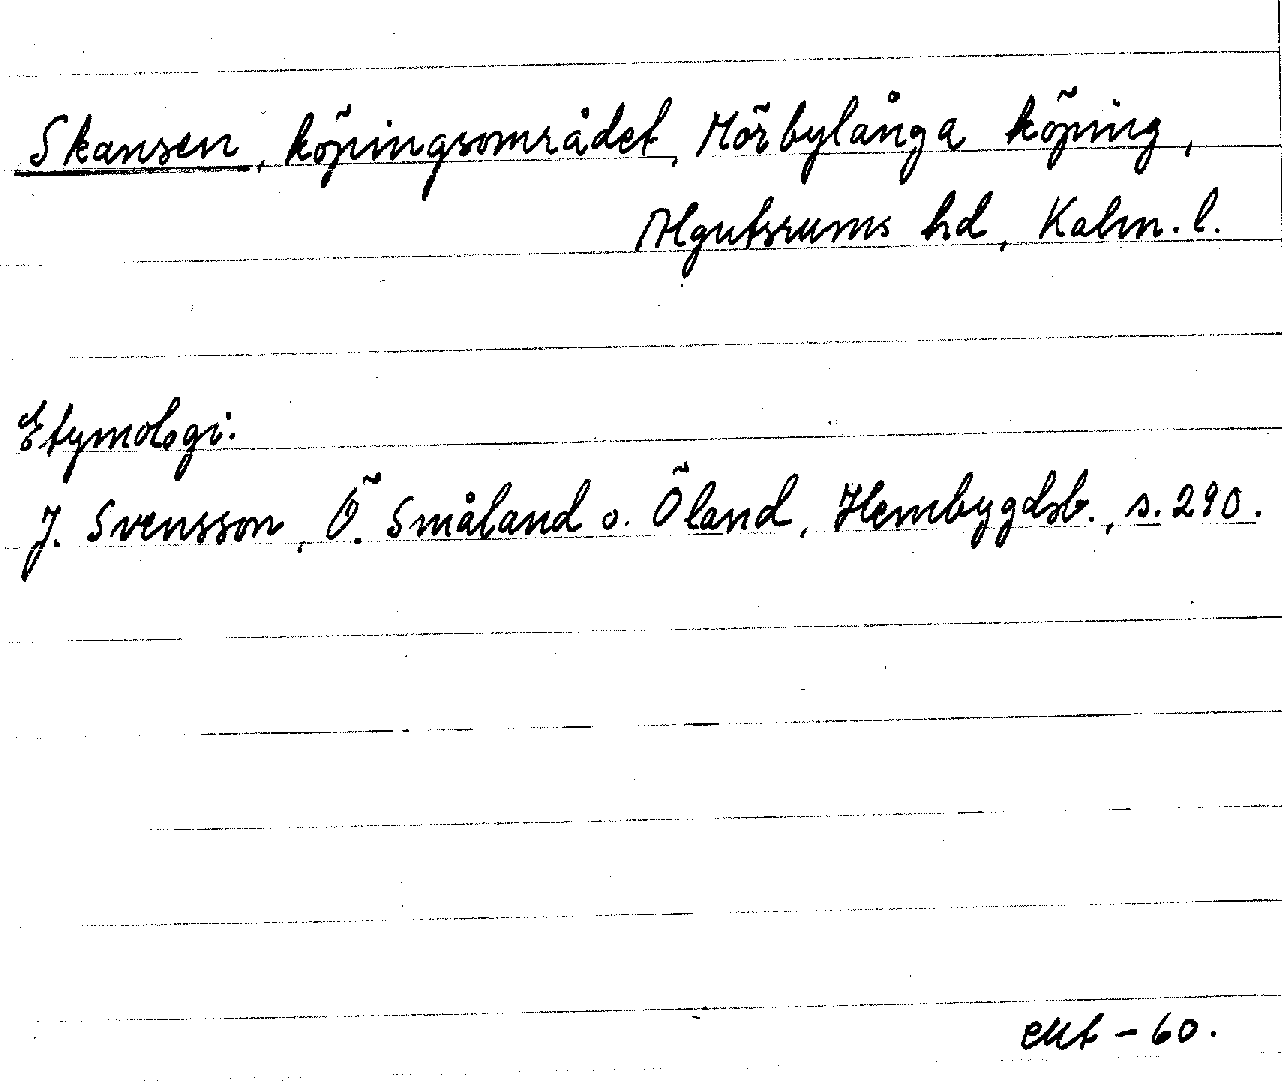 Skansen, köpingsområdet, Mörbylånga köping,
Algutsrums hd, Kalm. l.
Etymologi.
J. Svensson, Ö. Småland o. Öland, Hembygdsb., s. 290.
- 60.